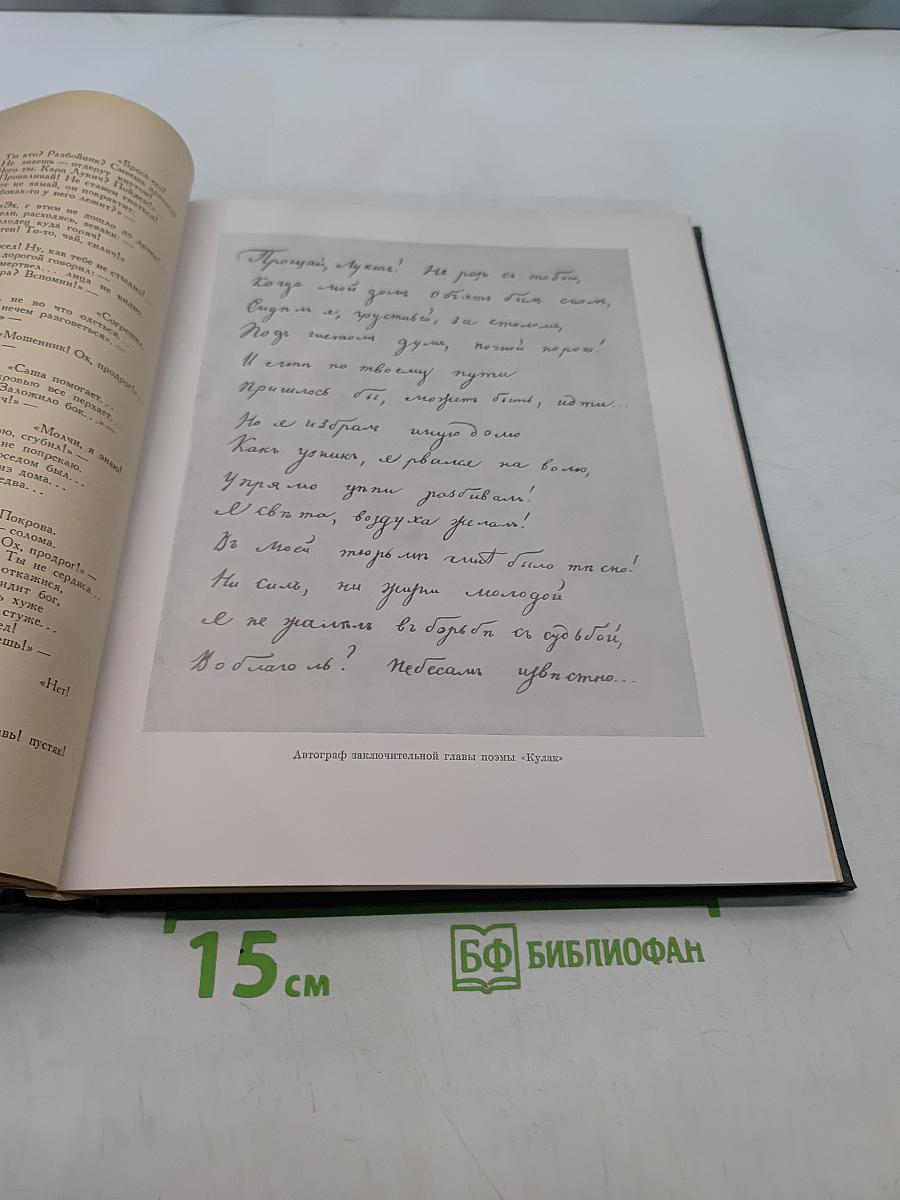 «Брось его!
Ты кто? Разбойник? Смеешь драться?
Не знаешь — отдерут кнутом!
Чего ты, Карп Лукич? Пойдем!» —
Проваливай! Не станем гнаться!
не замай, он покряхтит:
боках-то у него лежит?» —
«Эх, с этим не дошло до драки!
расходясь, зеваки: —
куда горяч!
То-то, чай, силач!»
Ну, как тебе не стыдно! —
дорогой говорил: —
лица не видно.
Вспомни!» —
«Согрешил,
не во что одеться...
нечем разговеться». —
«Мошенник! Ох, продрог!» —
«Саша помогает...
кровью все перхает...
Заложило бок...» —
«Молчи, я знаю!
сгубил!» —
не попрекаю.
был...
из дома...
Покрова.
— солома.
Ох, продрог!» —
Ты не сердися...
откажися,
бог,
хуже
стуже...
«Нет!
пустяк!
Прощай, Лукичъ! Не разъ съ тобою,
Когда мой домъ объятъ былъ сномъ,
Сидѣлъ я, грустный, за столомъ,
Подъ гнетомъ думъ, ночной порою!
И мнѣ по твоему пути
Пришлось бы, можетъ быть, идти...
Но я избралъ иную долю
Какъ узникъ, я рвался на волю,
Упрямо цѣпи разбивалъ!
Я свѣта, воздуха желалъ!
Въ моей тюрьмѣ мнѣ было тѣсно!
Ни силъ, ни жизни молодой
Я не жалѣлъ въ борьбѣ съ судьбой,
Во благо ль? Небесамъ извѣстно...
Автограф заключительной главы поэмы «Кулак»
15 см
БФ БИБЛИОФАН